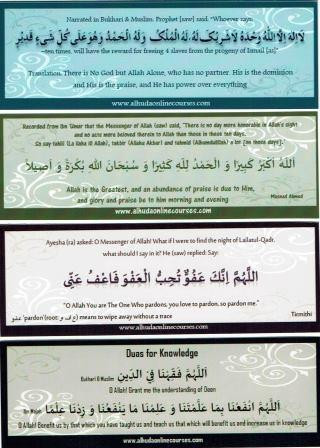 Narrated in Bukhari & Muslim. Prophet [saw] said: "Whoever says:
لَا إِلَهَ إِلَّا اللَّهُ وَحْدَهُ لَا شَرِيكَ لَهُ، لَهُ الْمُلْكُ وَلَهُ الْحَمْدُ وَهُوَ عَلَى كُلِّ شَيْءٍ قَدِيرٌ
-ten times, will have the reward for freeing 4 slaves from the progeny of Ismail [as]"
Translation: There is No God but Allah Alone, who has no partner. His is the dominion
and His is the praise, and He has power over everything
www.alhudaonlinecourses.com
Recorded from Ibn 'Umar that the Messenger of Allah (saw) said, "There is no day more honorable in Allah's sight
and no acts more beloved therein to Allah than those in these ten days.
So say tahlil (La ilaha ill Allah), takbir (Allahu Akbar) and tahmid (Alhumdulillah) a lot [on these days]."
اللَّهُ أَكْبَرُ كَبِيرًا وَ الْحَمْدُ لِلَّهِ كَثِيرًا وَ سُبْحَانَ اللَّهِ بُكْرَةً وَ أَصِيلًا
Allah is the Greatest, and an abundance of praise is due to Him,
and glory and praise be to him morning and evening
Musnad Ahmed
www.alhudaonlinecourses.com
Ayesha (ra) asked: O Messenger of Allah! What if I were to find the night of Lailatul-Qadr,
what should I say in it? He (saw) replied: Say:
اللَّهُمَّ إِنَّكَ عَفُوٌّ تُحِبُّ الْعَفْوَ فَاعْفُ عَنِّي
"O Allah You are The One Who pardons, you love to pardon, so pardon me."
عفو 'pardon' (root: ع ف و) means to wipe away without a trace
Tirmithi
www.alhudaonlinecourses.com
Duas for Knowledge
اللَّهُمَّ فَقِّهْنَا فِي الدِّينِ
Bukhari & Muslim
O Allah! Grant me the understanding of Deen
اللَّهُمَّ انْفَعْنَا بِمَا عَلَّمْتَنَا وَ عَلِّمْنَا مَا يَنْفَعُنَا وَ زِدْنَا عِلْمًا
Ibn Majah
O Allah! Benefit us by that which you have taught us and teach us that which will benefit us and increase us in knowledge
www.alhudaonlinecourses.com